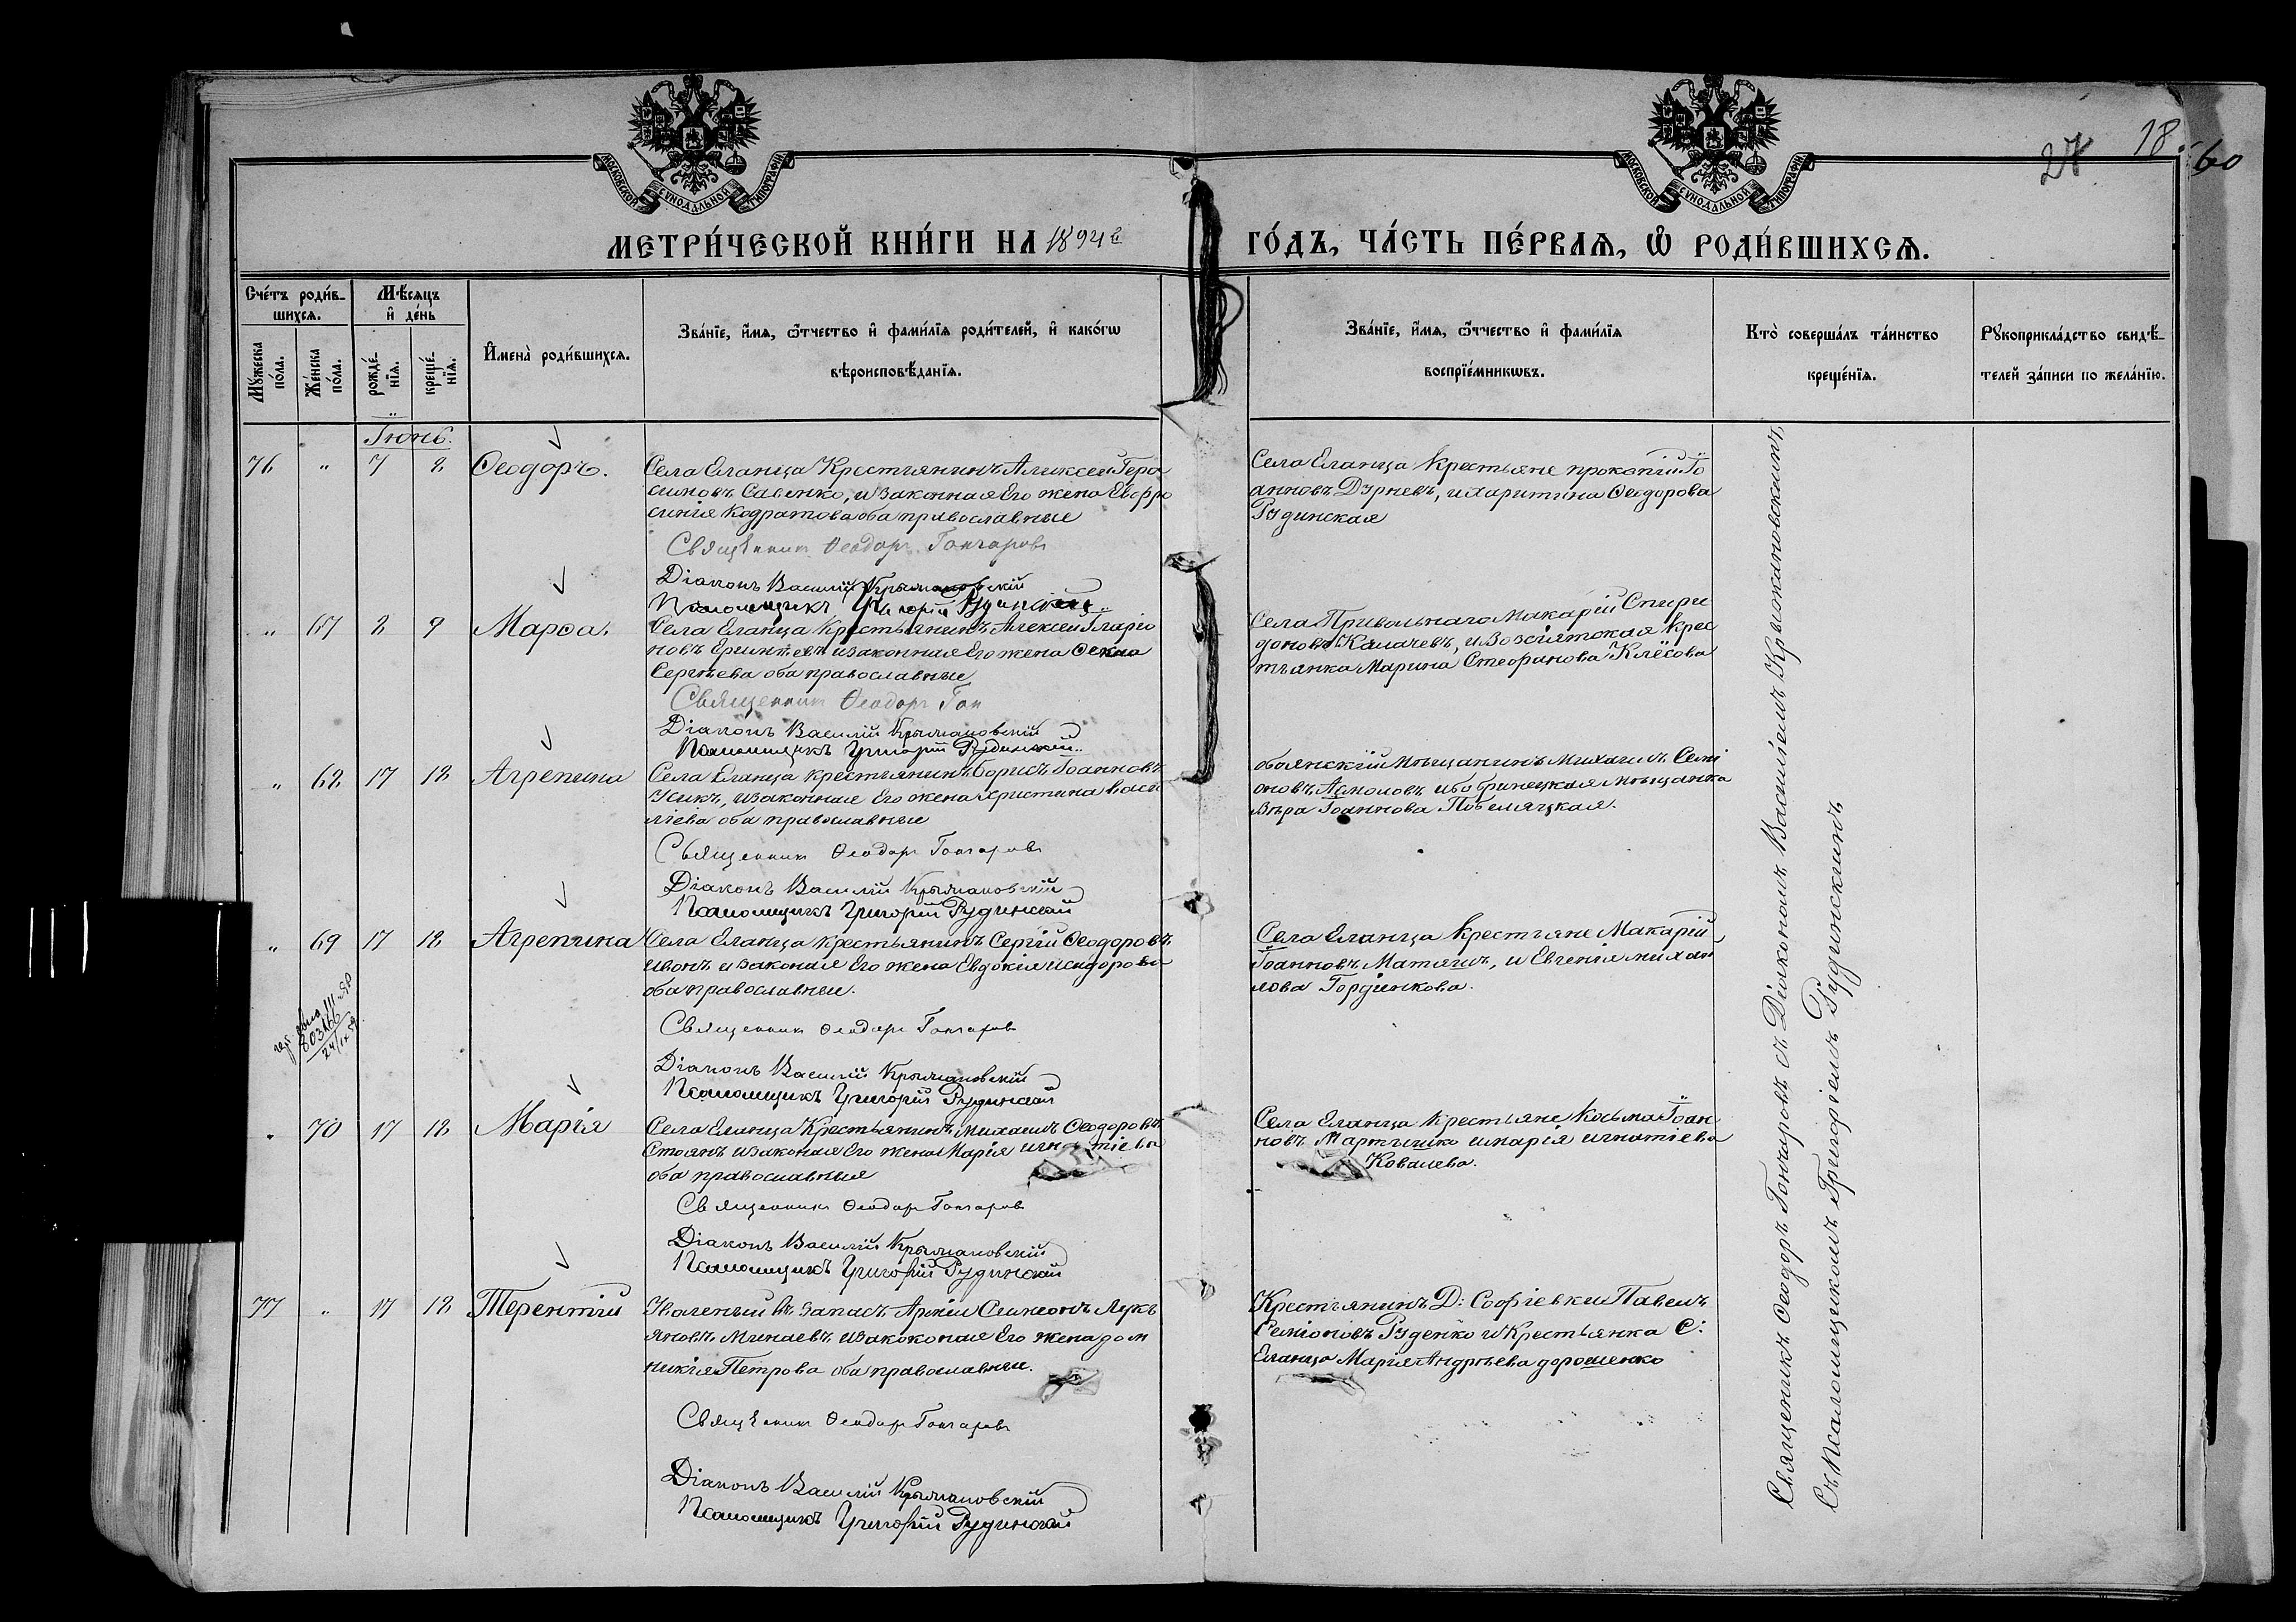 МОСКОВСКОЙ СУНОДАЛЬНОЙ ТИПОГРАФИИ
МОСКОВСКОЙ СУНОДАЛЬНОЙ ТИПОГРАФИИ
18.
60
МЕТРИ́ЧЕСКОЙ КНИ́ГИ НА 1894 г
ГО́ДЪ, ЧА́СТЬ ПЕ́РВАѦ, Ѡ РОДИ́ВШИХСѦ.
Сче́тъ роди́в-
шихсѧ.
Мѣ́сѧцъ
и де́нь
Мꙋ́жеска по́ла.
Же́нска по́ла.
рожде́-
нїѧ.
креще́-
нїѧ.
Имена̀ роди́вшихсѧ.
Зва́нїе, и́мѧ, ѻ́тчество и фами́лїѧ роди́телей, и како́гѡ
вѣроисповѣ́данїѧ.
Зва́нїе, и́мѧ, ѻ́тчество и фами́лїѧ
воспрїе́мникѡвъ.
Кто̀ соверша́лъ та́инство
креще́нїѧ.
Рꙋкоприкла́дство свидѣ́-
телей за́писи по жела́нїю.
Іюнь.
76 " 7 8 Ѳеодоръ.
Села Еланца Крестьянинъ Алексей Гера
симовъ Савенко, и законная Его жена Евфро
синія Кодратова оба православные
Священникъ Ѳеодоръ Гончаровъ
Діаконъ Василій Крыжановскій
Псаломщикъ Григорій Рудинскій
Села Еланца Крестьяне Прокопій Іо
анновъ Дурневъ, и Харитина Ѳеодорова
Рудинская
" 67 8 9 Марѳа.
Села Еланца Крестьянинъ Алексей Иларіо
новъ и законная Его жена Ѳекла
Сергѣева оба православные
Священникъ Ѳеодоръ Гон
Діаконъ Василій Крыжановскій
Псаломщикъ Григорій Рудинскій
Села Привольнаго Макарій Спири
доновъ Калачевъ, и Крес
тьянка Марина Стефанова Клёсова
" 68 17 18 Агрепина
Села Еланца крестьянинъ Борисъ Іоанновъ
Усикъ, и законная Его жена Христина Васи
лѣева оба православные
Священникъ Ѳеодоръ Гончаровъ
Діаконъ Василій Крыжановскій
Псаломщикъ Григорій Рудинскій
обоянскій Мѣщанинъ Михаилъ Семі
оновъ и бобринецкая мѣщанка
Вѣра Іоаннова
" 69 17 18 Агрепина
Села Еланца крестьянинъ Сергій Ѳеодоровъ
Ивонъ и законая Его жена Евдокія Исидорова
оба православные.
Священникъ Ѳеодоръ Гончаровъ
Діаконъ Василій Крыжановскій
Псаломщикъ Григорій Рудинскій
Села Еланца Крестьяне Макарій
Іоанновъ Матяшъ, и Евгенія михаи
лова Гордіенкова.
803166
24/IX 59
" 70 17 18 Марія
Села Еланца Крестьянинъ Михаилъ Ѳеодоровъ
Стоянъ и законая Его жена Марія игнатіева
оба православныя
Священникъ Ѳеодоръ Гончаровъ
Діаконъ Василій Крыжановскій
Псаломщикъ Григорій Рудинскій
Села Еланца Крестьяне Косьма Іоан
новъ Мартышко и марія игнатіева
Ковалева.
77 " 17 18 Терентій
Уволеный въ запасъ Арміи Симеонъ Лукъ
яновъ Минаевъ и закоконая Его жена дом
никія Петрова оба православные.
Священникъ Ѳеодоръ Гончаровъ
Діаконъ Василій Крыжановскій
Псаломщикъ Григорій Рудинскій
Крестьянинъ Д: Софіевки Павелъ
Семіоновъ Руденко и Крестьянка С:
Еланца Марія Андрѣева дорошенко
Священникъ Ѳеодоръ Гончаровъ съ Діакономъ Василіемъ Крыжановскимъ,
Съ Псаломщикомъ Григоріемъ Рудинскимъ